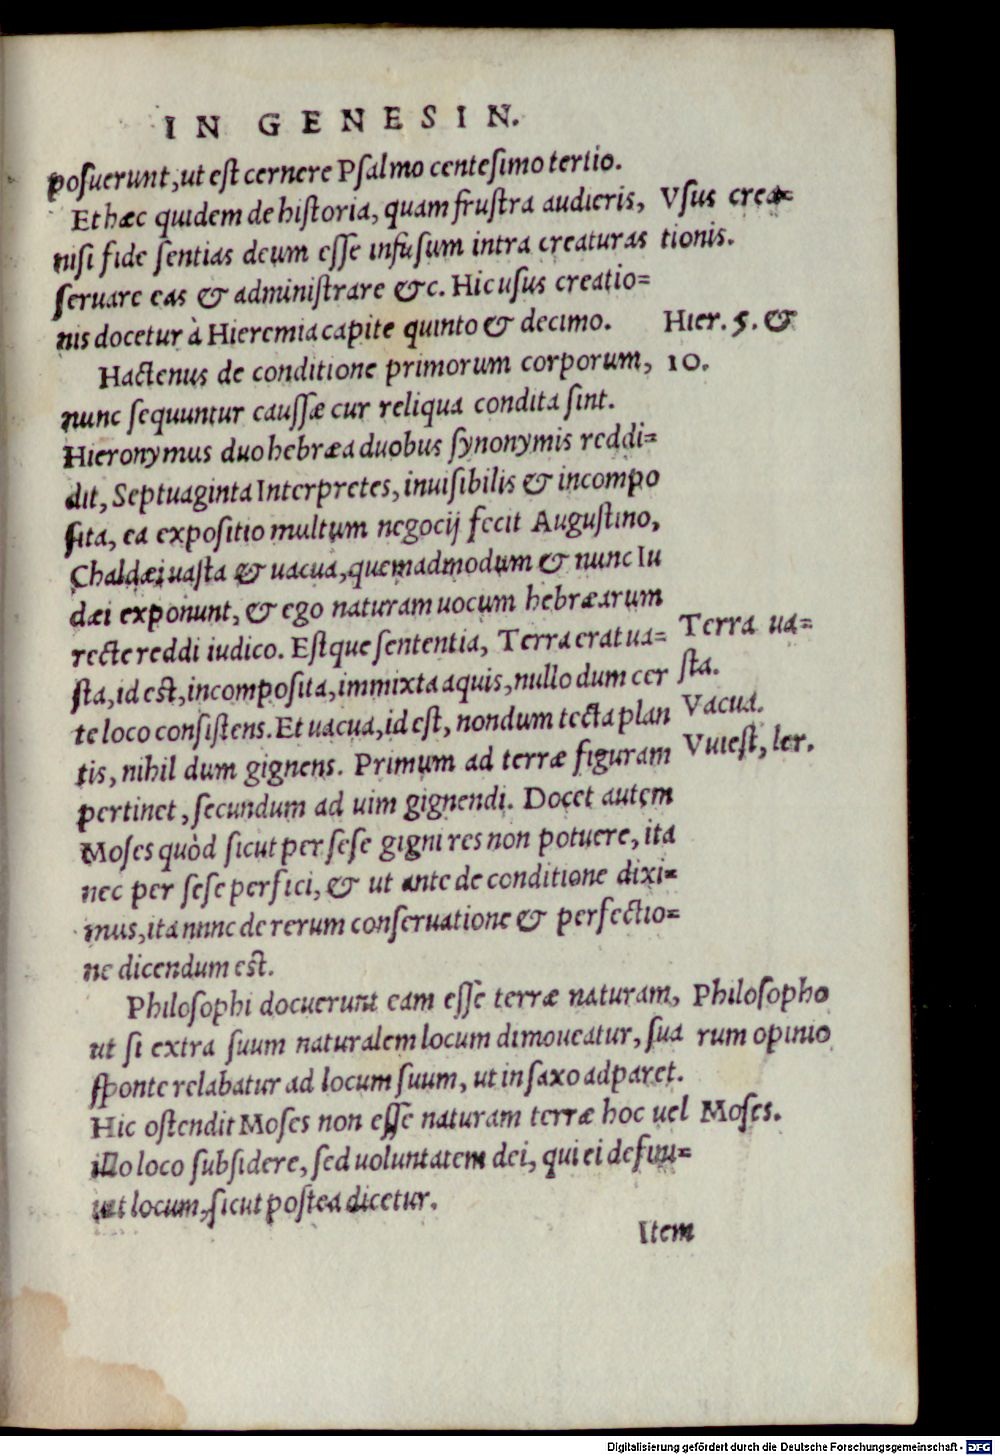 IN GENESIN.
posuerunt, ut est cernere Psalmo centesimo tertio.
Et hæc quidem de historia, quam frustra audieris,
Vsus crea=
nisi fide sentias deum esse infusum intra creaturas
tionis.
seruare eas & administrare &c. Hic usus creatio=
nis docetur à Hieremia capite quinto & decimo.
Hier. 5. &
Hactenus de conditione primorum corporum,
10.
nunc sequuntur caussæ cur reliqua condita sint.
Hieronymus duo hebræa duobus synonymis reddi=
dit, Septuaginta Interpretes, inuisibilis & incompo
sita, ea expositio multum negocij fecit Augustino,
Chaldæi uasta & uacua, quemadmodum & nunc Iu
dæi exponunt, & ego naturam uocum hebræarum
recte reddi iudico. Estque sententia, Terra erat ua=
Terra ua=
sta, id est, incomposita, immixta aquis, nullo dum cer
sta.
te loco consistens. Et uacua, id est, nondum tecta plan
Vacua.
tis, nihil dum gignens. Primum ad terræ figuram
Vuiest, ler.
pertinet, secundum ad uim gignendi. Docet autem
Moses quòd sicut per sese gigni res non potuere, ita
nec per sese perfici, & ut ante de conditione dixi=
mus, ita nunc de rerum conseruatione & perfectio=
ne dicendum est.
Philosophi docuerunt eam esse terræ naturam,
Philosopho
ut si extra suum naturalem locum dimoueatur, sua
rum opinio
sponte relabatur ad locum suum, ut in saxo adparet.
Hic ostendit Moses non esse naturam terræ hoc uel
Moses.
illo loco subsidere, sed uoluntatem dei, qui ei defini=
uit locum, sicut postea dicetur.
Item
Digitalisierung gefördert durch die Deutsche Forschungsgemeinschaft - DFG